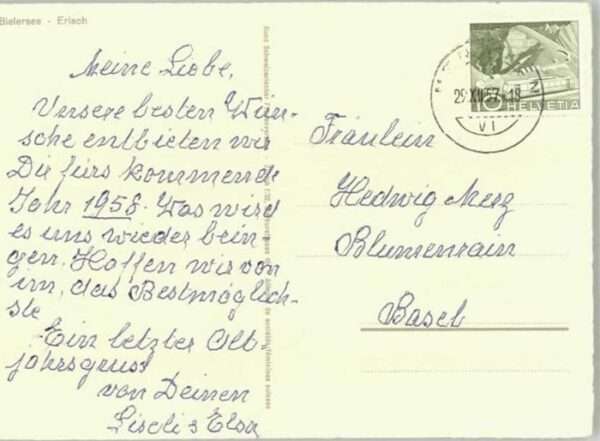 Bielersee - Erlach
Meine Liebe,
Unsere besten Wün-
sche entbieten wir
Dir fürs kommende
Jahr 1958. Was wird
es uns wieder brin-
gen. Hoffen wir von
im, das Bestmöglich-
ste
Ein letzter Alt-
jahrsgruss
von Deinen
Liseli & Elsa
29.XII.57.-18
VI
10 HELVETIA
Fräulein
Hedwig Merz
Blumenrain
Basel